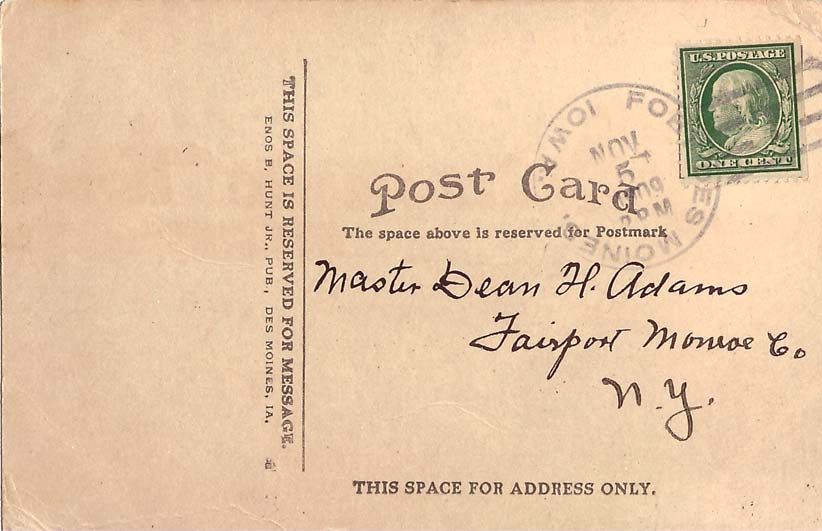 U.S. POSTAGE
ONE CENT
FORT DES MOINES, IOWA
NOV
5
09
PM
Post Card
The space above is reserved for Postmark
Master Dean H. Adams
Fairport Monroe Co
N.Y.
THIS SPACE FOR ADDRESS ONLY.
THIS SPACE IS RESERVED FOR MESSAGE.
ENOS B, HUNT JR., PUB., DES MOINES, IA.